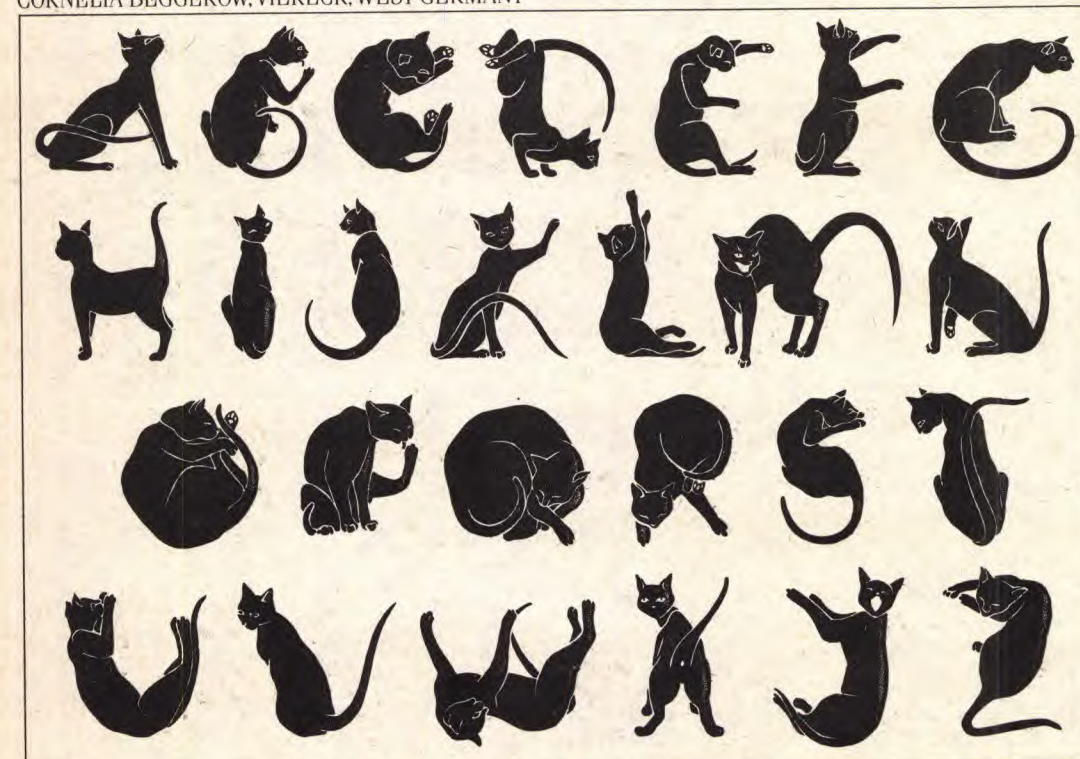 CORNELIA BEGGEROW, VIERECK, WEST GERMANY
A B C D E F G
H I J K L M N
O P Q R S T
U V W X Y Z